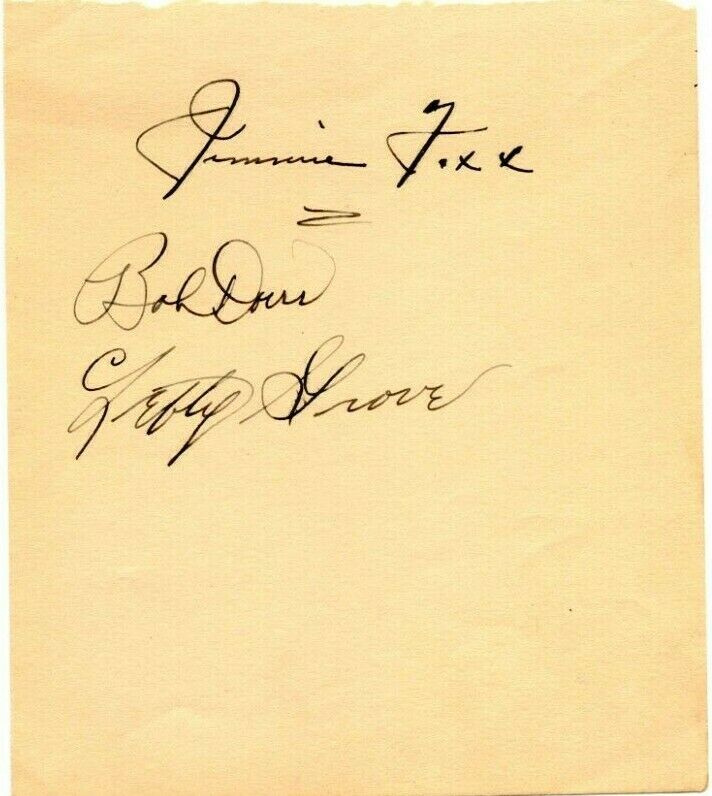 Jimmie Foxx
Bob Doerr
Lefty Grove